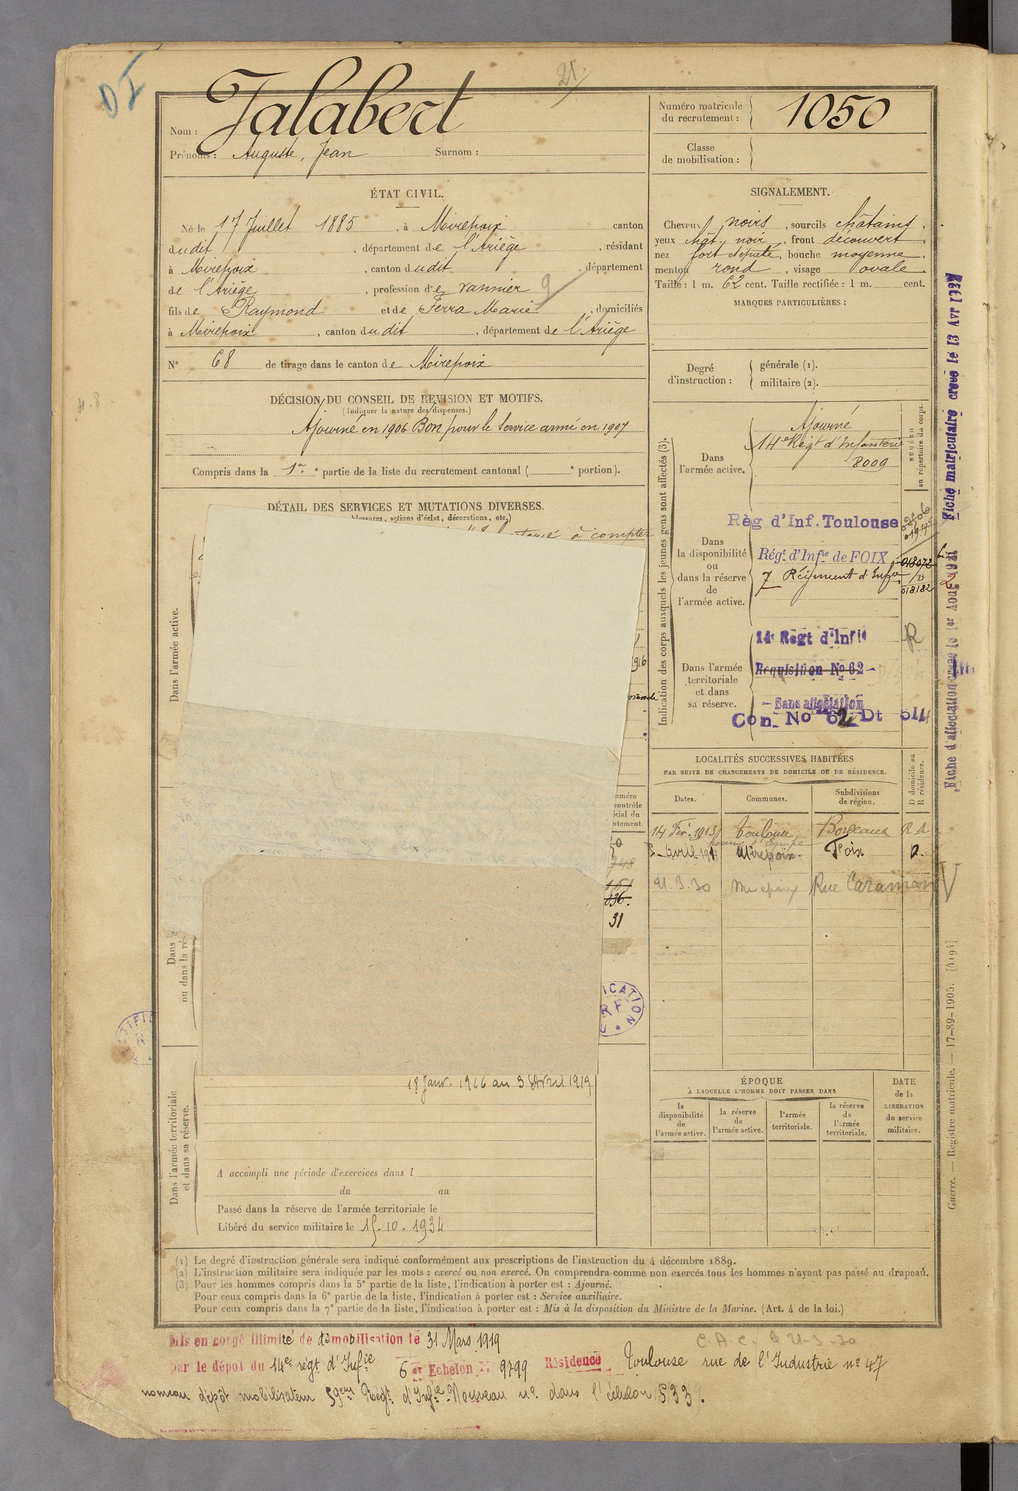 21.
Nom : Jalabert
Prénoms : Auguste, Jean Surnom :
Numéro matricule du recrutement : 1050
Classe de mobilisation :
ÉTAT CIVIL.
Né le 17 Juillet 1885, à Mirepoix canton
dudit, département de l'Ariège, résidant
à Mirepoix, canton dudit, département
de l'Ariège, profession de vannier 9
fils de Raymond et de Ferra Marie, domiciliés
à Mirepoix, canton dudit, département de l'Ariège
N° 68 de tirage dans le canton de Mirepoix
SIGNALEMENT.
Cheveux noirs, sourcils châtains
yeux chât. noir, front découvert
nez fort, bouche moyenne
menton rond, visage ovale
Taille : 1 m. 62 cent. Taille rectifiée : 1 m. cent.
MARQUES PARTICULIÈRES :
Degré d'instruction : générale (1).
militaire (2).
DÉCISION DU CONSEIL DE RÉVISION ET MOTIFS.
(Indiquer la nature des dispenses.)
Ajourné en 1906 Bon pour le Service armé en 1907
Compris dans la 1re partie de la liste du recrutement cantonal ( e portion).
DÉTAIL DES SERVICES ET MUTATIONS DIVERSES.
blessures, actions d'éclat, décorations, etc.)
à compter
Dans l'armée active.
Indication des corps auxquels les jeunes gens sont affectés (3).
NUMÉRO au répertoire du corps.
Dans l'armée active.
Ajourné
14e Régt d'Infanterie
8009
Dans la disponibilité ou dans la réserve de l'armée active.
Règ d'Inf. Toulouse
Régt. d'Infie de FOIX
018072
7 Régiment d'Infie
018182
Dans l'armée territoriale et dans sa réserve.
14e Régt d'Infie
R
Requisition No 62
Sans affectation
Con. No 62 Dt 514
LOCALITÉS SUCCESSIVES HABITÉES
PAR SUITE DE CHANGEMENTS DE DOMICILE OU DE RÉSIDENCE.
Dates. Communes. Subdivisions de région. D domicile ou R résidence.
14 Fév. 1913 Toulouse Bordeaux R d
avril 191 Mirepoix Foix
21.3.30 Mirepoix Rue Caraman
151
136.
31
18 Janv. 1916 au 3 Avril 1919
Dans l'armée territoriale et dans sa réserve.
A accompli une période d'exercices dans l
du au
Passé dans la réserve de l'armée territoriale le
Libéré du service militaire le 15-10-1934
ÉPOQUE
À LAQUELLE L'HOMME DOIT PASSER DANS
la disponibilité de l'armée active. la réserve de l'armée active. l'armée territoriale. la réserve de l'armée territoriale.
DATE de la LIBÉRATION du service militaire.
(1) Le degré d'instruction générale sera indiqué conformément aux prescriptions de l'instruction du 4 décembre 1889.
(2) L'instruction militaire sera indiquée par les mots : exercé ou non exercé. On comprendra comme non exercés tous les hommes n'ayant pas passé au drapeau.
(3) Pour les hommes compris dans la 5e partie de la liste, l'indication à porter est : Ajourné.
Pour ceux compris dans la 6e partie de la liste, l'indication à porter est : Service auxiliaire.
Pour ceux compris dans la 7e partie de la liste, l'indication à porter est : Mis à la disposition du Ministre de la Marine. (Art. 4 de la loi.)
Mis en congé illimité de démobilisation le 31 Mars 1919
par le dépôt du 14e régt d'Infie 6 er Echelon N° 9799 Résidence Toulouse rue de l'Industrie n° 47
nouveau dépôt mobilisateur 59ème Régt. d'Infie Nouveau n° dans l'échelon 1533.
Fiche matriculaire créée le 13 Avr 1927
Fiche d'affectation créée le 1er Aout 1921
Guerre. — Registre matricule. — 17-89-1905. [4194]